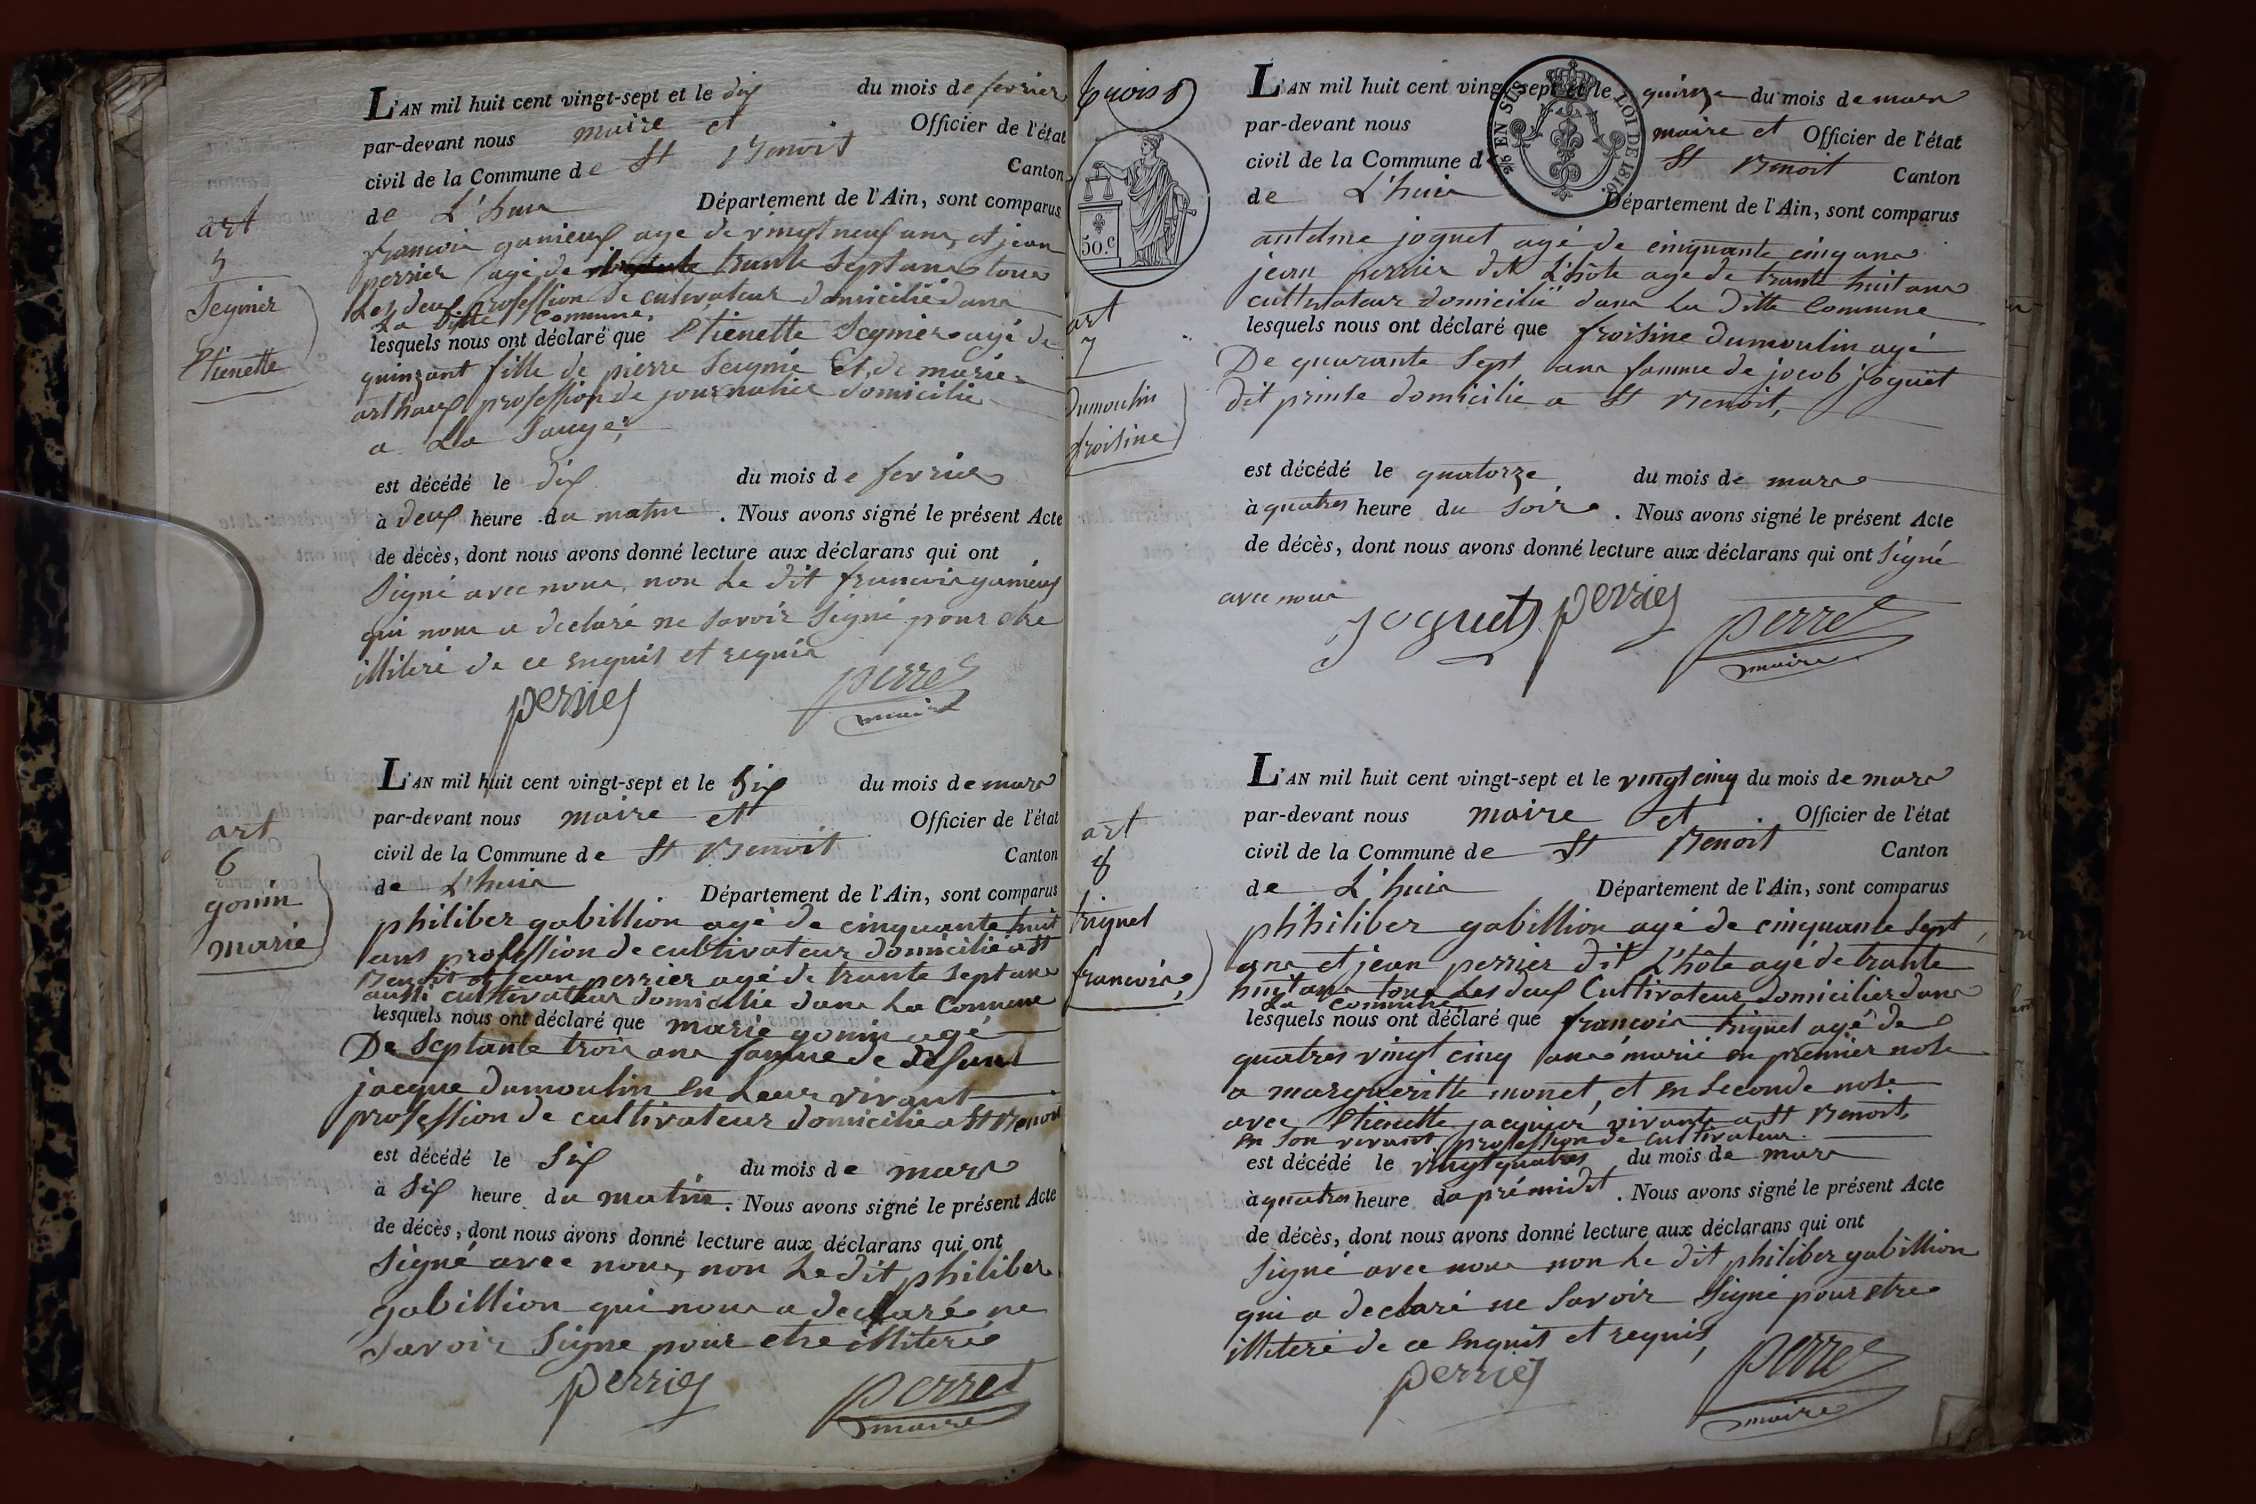 L'AN mil huit cent vingt-sept et le dix du mois de fevrier
par-devant nous maire et Officier de l'état
civil de la Commune de St Benoit Canton
de L'huis Département de l'Ain, sont comparus
art
5
Seignier
Etienette
francois ganieux age de vingt neuf ans, et jean
perrier agé de trante Sept ans tous
Les deux profession de cultivateur domicilié dans
La ditte Commune,
lesquels nous ont déclaré que Etienette Seignier agé de
quinzant fille de pierre Seignié Et de marie
arthaux profession de journalier domicilié
a La Sauge,
est décédé le dix du mois de fevrier
à deux heure du matin. Nous avons signé le présent Acte
de décès, dont nous avons donné lecture aux déclarans qui ont
Signé avec nous, non Le dit francois ganieux
qui nous a declaré ne Savoir Signé pour etre
illiteré de ce Enquis et requis
perrier perret
maire
L'AN mil huit cent vingt-sept et le Six du mois de mars
par-devant nous maire et Officier de l'état
civil de la Commune de St Benoit Canton
de L'huis Département de l'Ain, sont comparus
art
6
gonin
marie
philiber gabillion agé de cinquante huit
ans profession de cultivateur domicilié a St
Benoit et jean perrier agé de trante Sept ans
aussi cultivateur domicilié dans La Commune
lesquels nous ont déclaré que marie gonin agé
De Septante trois ans famme de défunt
jacque dumoulin En Leur vivant
profession de cultivateur domicilié a St Benoit
est décédé le Six du mois de mars
à Six heure du matin. Nous avons signé le présent Acte
de décès, dont nous avons donné lecture aux déclarans qui ont
Signé avec nous, non Le dit philiber
gabillion qui nous a declaré ne
Savoir Signe pour etre illiteré
perrier perret
maire
2/6 EN SUS LOI DE 1816.
50.c
L'AN mil huit cent vingt-sept et le quinze du mois de mars
par-devant nous maire et Officier de l'état
civil de la Commune d St Benoit Canton
de L'huis Département de l'Ain, sont comparus
art
7
Dumoulin
froisine
antelme joguet agé de cinquante cinq ans
jean perrier dit L'hôte age de trante huit ans
cultivateur domicilié dans La ditte Commune
lesquels nous ont déclaré que froisine dumoulin agé
De quarante Sept ans famme de jocob joguet
dit prinse domicilié a St Benoit,
est décédé le quatorze du mois de mars
à quatres heure du Soir. Nous avons signé le présent Acte
de décès, dont nous avons donné lecture aux déclarans qui ont Signé
avec nous
Joguet perrier perret
maire
L'AN mil huit cent vingt-sept et le vingt cinq du mois de mars
par-devant nous maire et Officier de l'état
civil de la Commune de St Benoit Canton
de L'huis Département de l'Ain, sont comparus
art
8
triquet
francois,
phhiliber gabillion agé de cinquante Sept,
ans et jean perrier dit L'hôte agé de trante
huit ans tous Les deux Cultivateur domicilier dans
La commune
lesquels nous ont déclaré que francois triquet agé de
quatres vingt cinq ans marié en premier nose
a margueritte monet, et En Seconde nose
avec Etienette jacquier vivante a St Benoit,
En Son vivant profession de cultivateur
est décédé le vingt quatres du mois de mars
à quatres heure daprémidit. Nous avons signé le présent Acte
de décès, dont nous avons donné lecture aux déclarans qui ont
Signé avec nous non Le dit philiber gabillion
qui a declaré ne Savoir Signé pour etre
illiteré de ce Enquis et requis,
perrier perret
maire